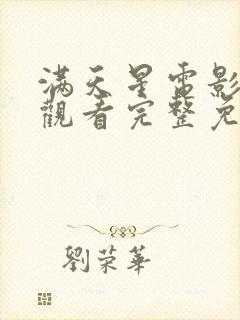 满天星電影
觀看完整免
劉荣華